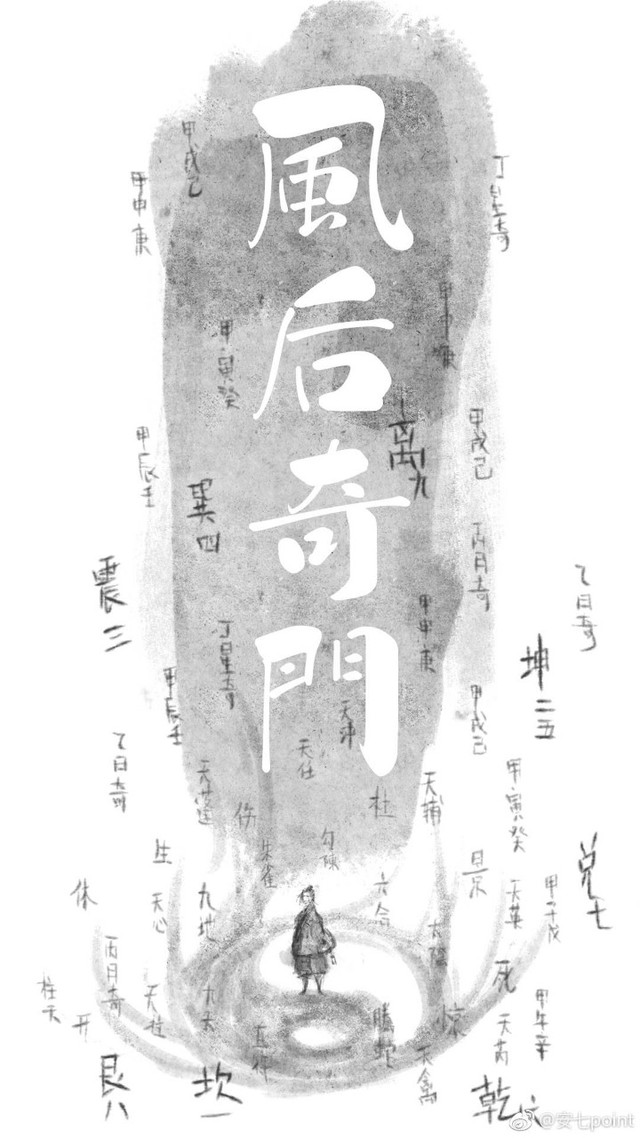 風后奇門
甲戌己
甲申庚
丁星奇
甲申庚
甲寅癸
離九
甲戌己
甲辰壬
巽四
丙月奇
震三
乙日奇
甲申庚
丁星奇
坤二五
甲辰壬
甲戌己
天沖
乙日奇
天任
天蓬
甲寅癸
天輔
杜
伤
勾陳
朱雀
生
景
兑七
休
天心
九地
六合
太陰
天英
甲子戊
丙月奇
死
柱天
开
天柱
九天
直符
騰蛇
惊
天芮
甲午辛
天禽
艮八
坎一
乾六
@安七point